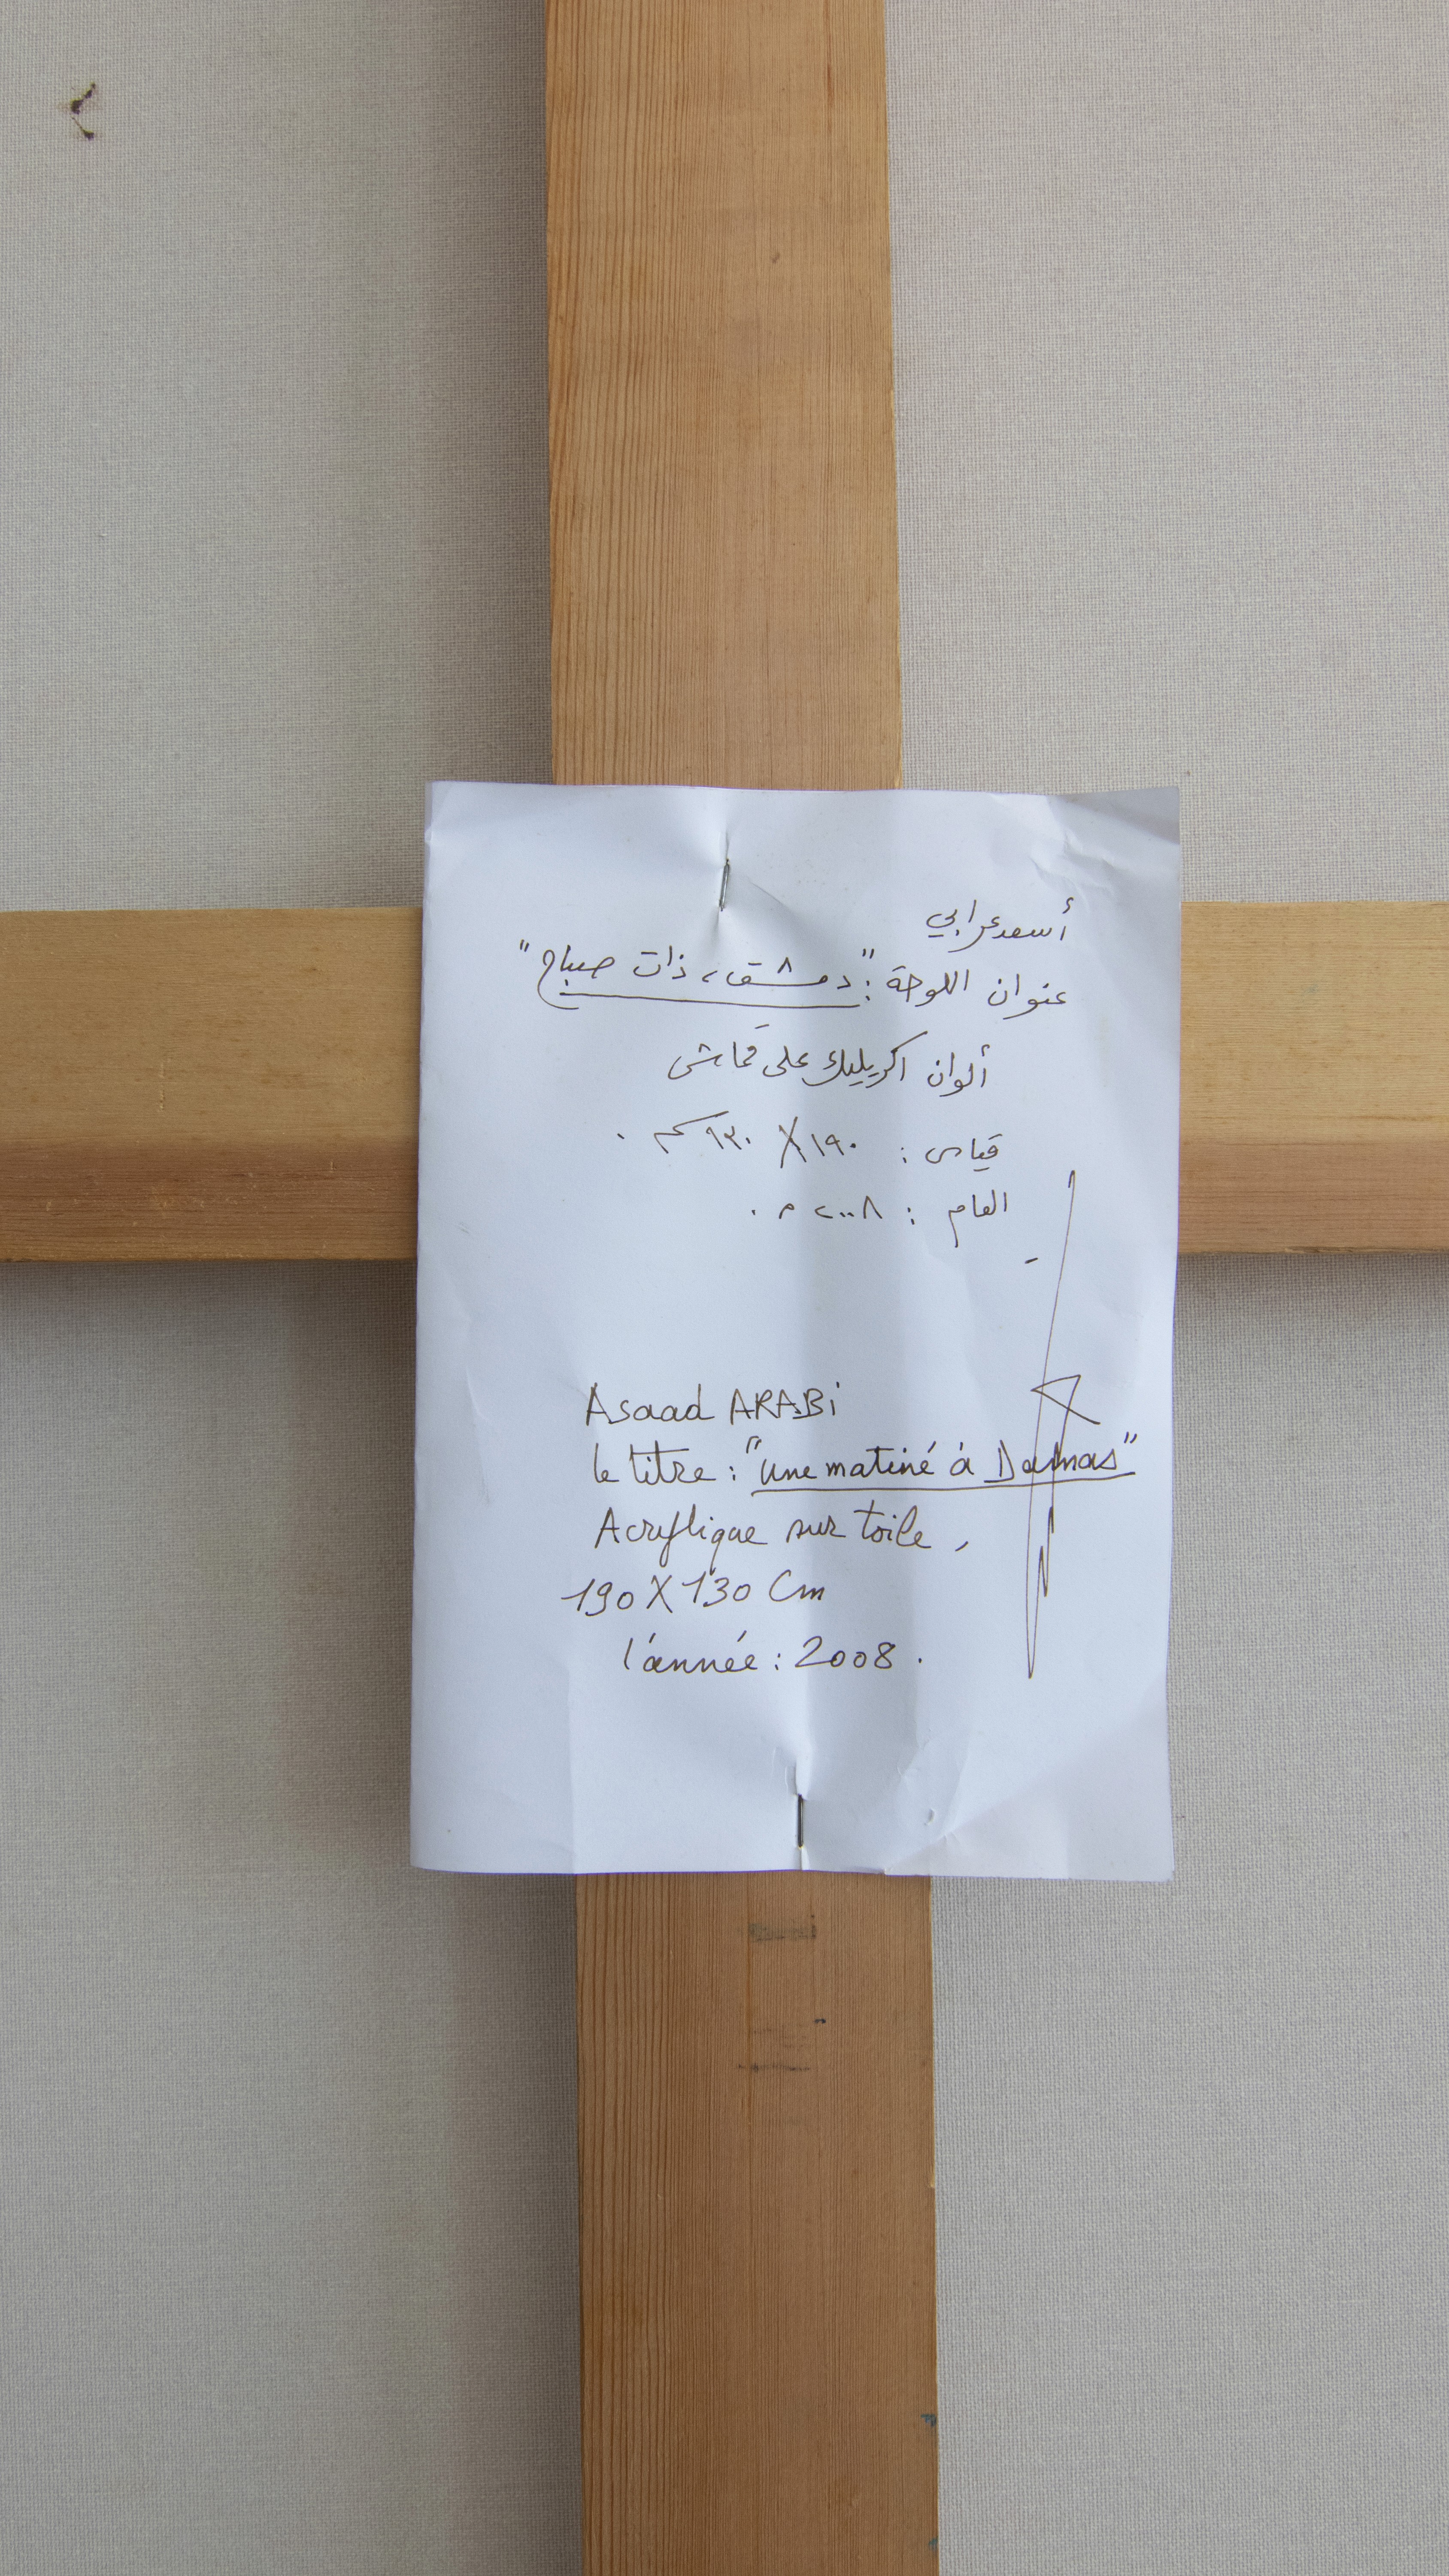 أسعد عرابي
عنوان اللوحة : "دمشق، ذات صباح"
ألوان اكريليك على قماش
قياس : ١٩٠ X ١٣٠ سم .
العام : ٢٠٠٨ م .
Asaad ARABi
le titre : "une matiné à Damas"
Acrylique sur toile,
190 X 130 Cm
l'année : 2008 .